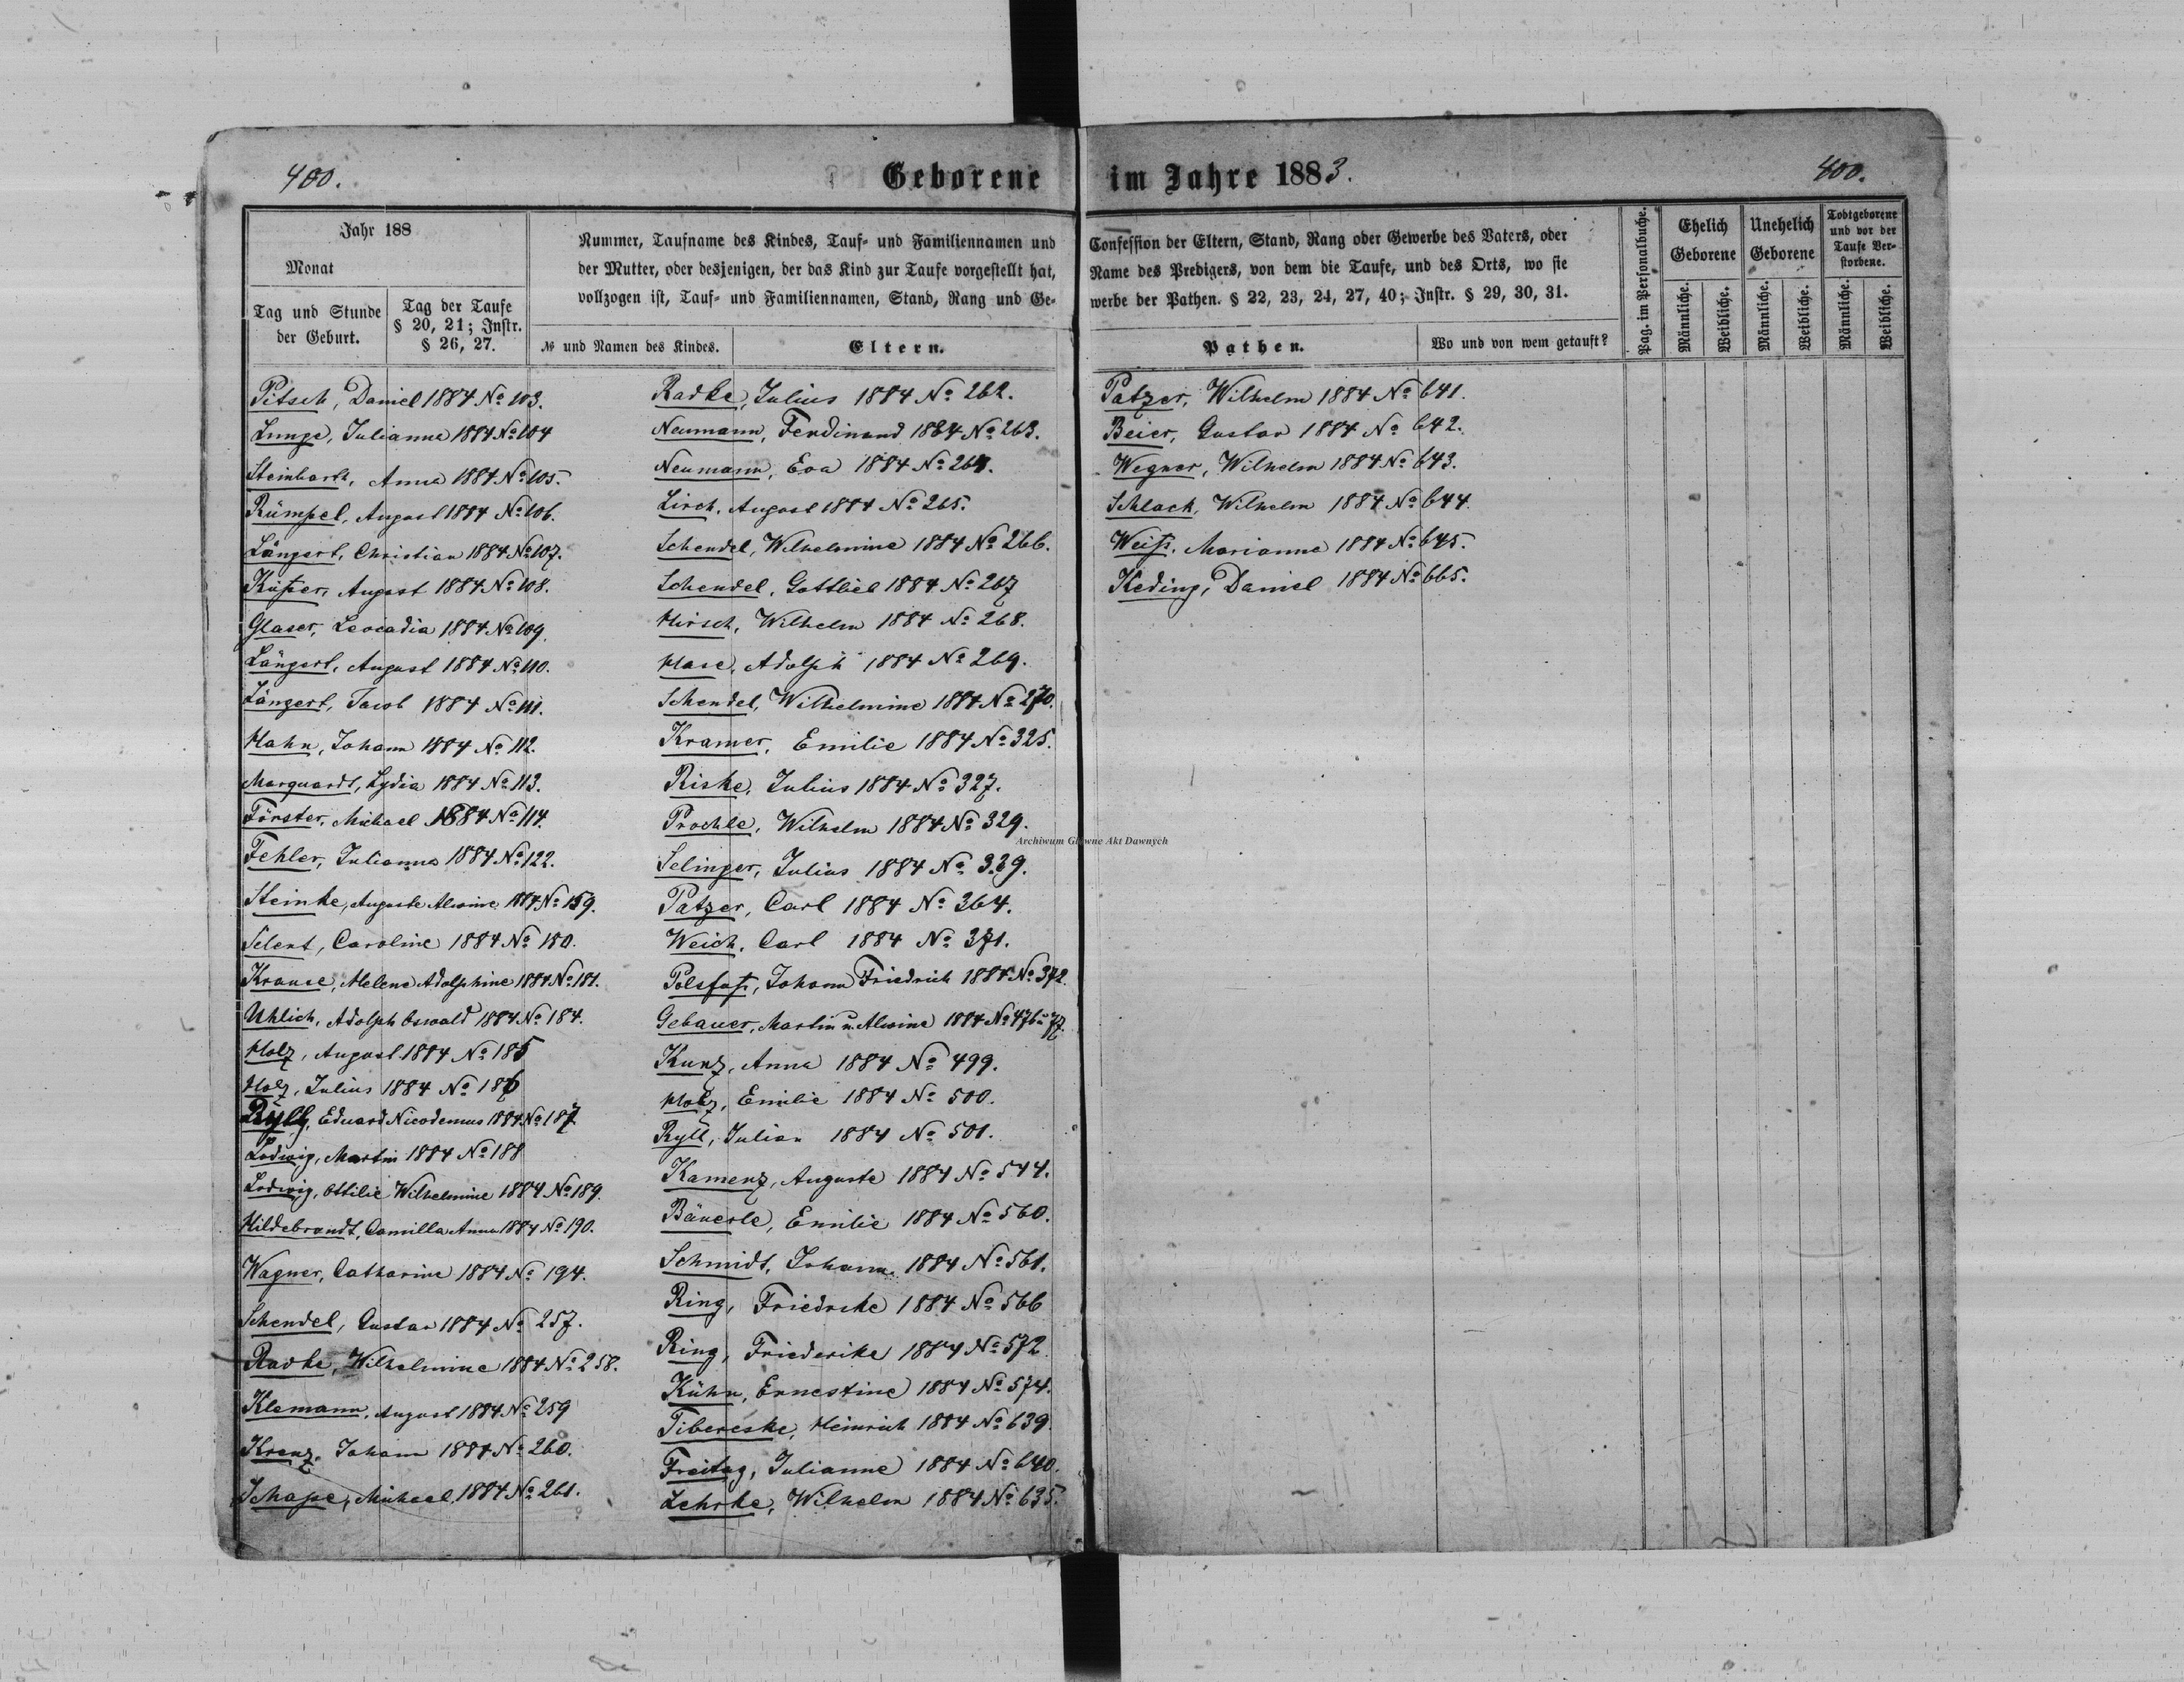 400.
Geborene im Jahre 1883.
400.
Jahr 188
Monat
Tag und Stunde
der Geburt.
Tag der Taufe
§ 20, 21; Instr.
§ 26, 27.
Nummer, Taufname des Kindes, Tauf- und Familiennamen und
der Mutter, oder desjenigen, der das Kind zur Taufe vorgestellt hat,
vollzogen ist, Tauf- und Familiennamen, Stand, Rang und Ge-
№ und Namen des Kindes.
Eltern.
Confession der Eltern, Stand, Rang oder Gewerbe des Vaters, oder
Name des Predigers, von dem die Taufe, und des Orts, wo sie
werbe der Pathen. § 22, 23, 24, 27, 40; Instr. § 29, 30, 31.
Pathen.
Wo und von wem getauft?
Pag. im Personalbuche.
Ehelich
Geborene
Unehelich
Geborene
Todtgeborene
und vor der
Taufe Ver-
storbene.
Männliche.
Weibliche.
Männliche.
Weibliche.
Männliche.
Weibliche.
Pitsch, Daniel 1884 № 103.
Lunge, Julianne 1884 № 104
Steinbarth, Anna 1884 № 105.
Rümpel, August 1884 № 106.
Längert, Christian 1884 № 107.
Küßer, August 1884 № 108.
Glaser, Leocadia 1884 № 109.
Längert, August 1884 № 110.
Längert, Jacob 1884 № 111.
Hahn, Johann 1884 № 112.
Marquardt, Lydia 1884 № 113.
Förster, Michael 1884 № 114.
Fehler, Julianna 1884 № 122.
Steinke, Auguste Alwine 1884 № 159.
Selent, Caroline 1884 № 180.
Krause, Helene Adolphine 1884 № 181.
Uhlich, Adolph Oswald 1884 № 184.
Holz, August 1884 № 185
Holz, Julius 1884 № 186
Ryll, Eduard Nicodemus 1884 № 187
Ludwig, Martin 1884 № 188
Ludwig, Ottilie Wilhelmine 1884 № 189.
Hildebrandt, Camilla Anna 1884 № 190.
Wagner, Catharine 1884 № 194.
Schendel, Gustav 1884 № 257.
Radke, Wilhelmine 1884 № 258.
Klemann, August 1884 № 259
Krenz, Johann 1884 № 260.
Schape, Michael 1884 № 261.
Radke, Julius 1884 № 262.
Neumann, Ferdinand 1884 № 263.
Neumann, Eva 1884 № 264.
Lirch, August 1884 № 265.
Schendel, Wilhelmine 1884 № 266.
Schendel, Gottlieb 1884 № 267
Hirsch, Wilhelm 1884 № 268.
Hase, Adolph 1884 № 269.
Schendel, Wilhelmine 1884 № 270.
Kramer, Emilie 1884 № 325.
Riske, Julius 1884 № 327.
Prochle, Wilhelm 1884 № 329.
Selinger, Julius 1884 № 339.
Patzer, Carl 1884 № 364.
Weich, Carl 1884 № 371.
Polsfuß, Johann Friedrich 1884 № 372.
Gebauer, Martin u. Alwine 1884 № 476 u 77.
Kunz, Anna 1884 № 499.
Holz, Emilie 1884 № 500.
Ryll, Julian 1884 № 501.
Kamenz, Auguste 1884 № 544.
Bäuerle, Emilie 1884 № 560.
Schmidt, Johann 1884 № 561.
Ring, Friedrike 1884 № 566
Ring, Friederike 1884 № 572
Kühn, Ernestine 1884 № 574.
Tibereske, Heinrich 1884 № 639.
Freitag, Julianne 1884 № 640.
Lehrke, Wilhelm 1884 № 635.
Patzer, Wilhelm 1884 № 641.
Beier, Gustav 1884 № 642.
Wegner, Wilhelm 1884 № 643.
Schlack, Wilhelm 1884 № 644.
Weiß, Marianna 1884 № 645.
Keding, Daniel 1884 № 665.
Archiwum Główne Akt Dawnych